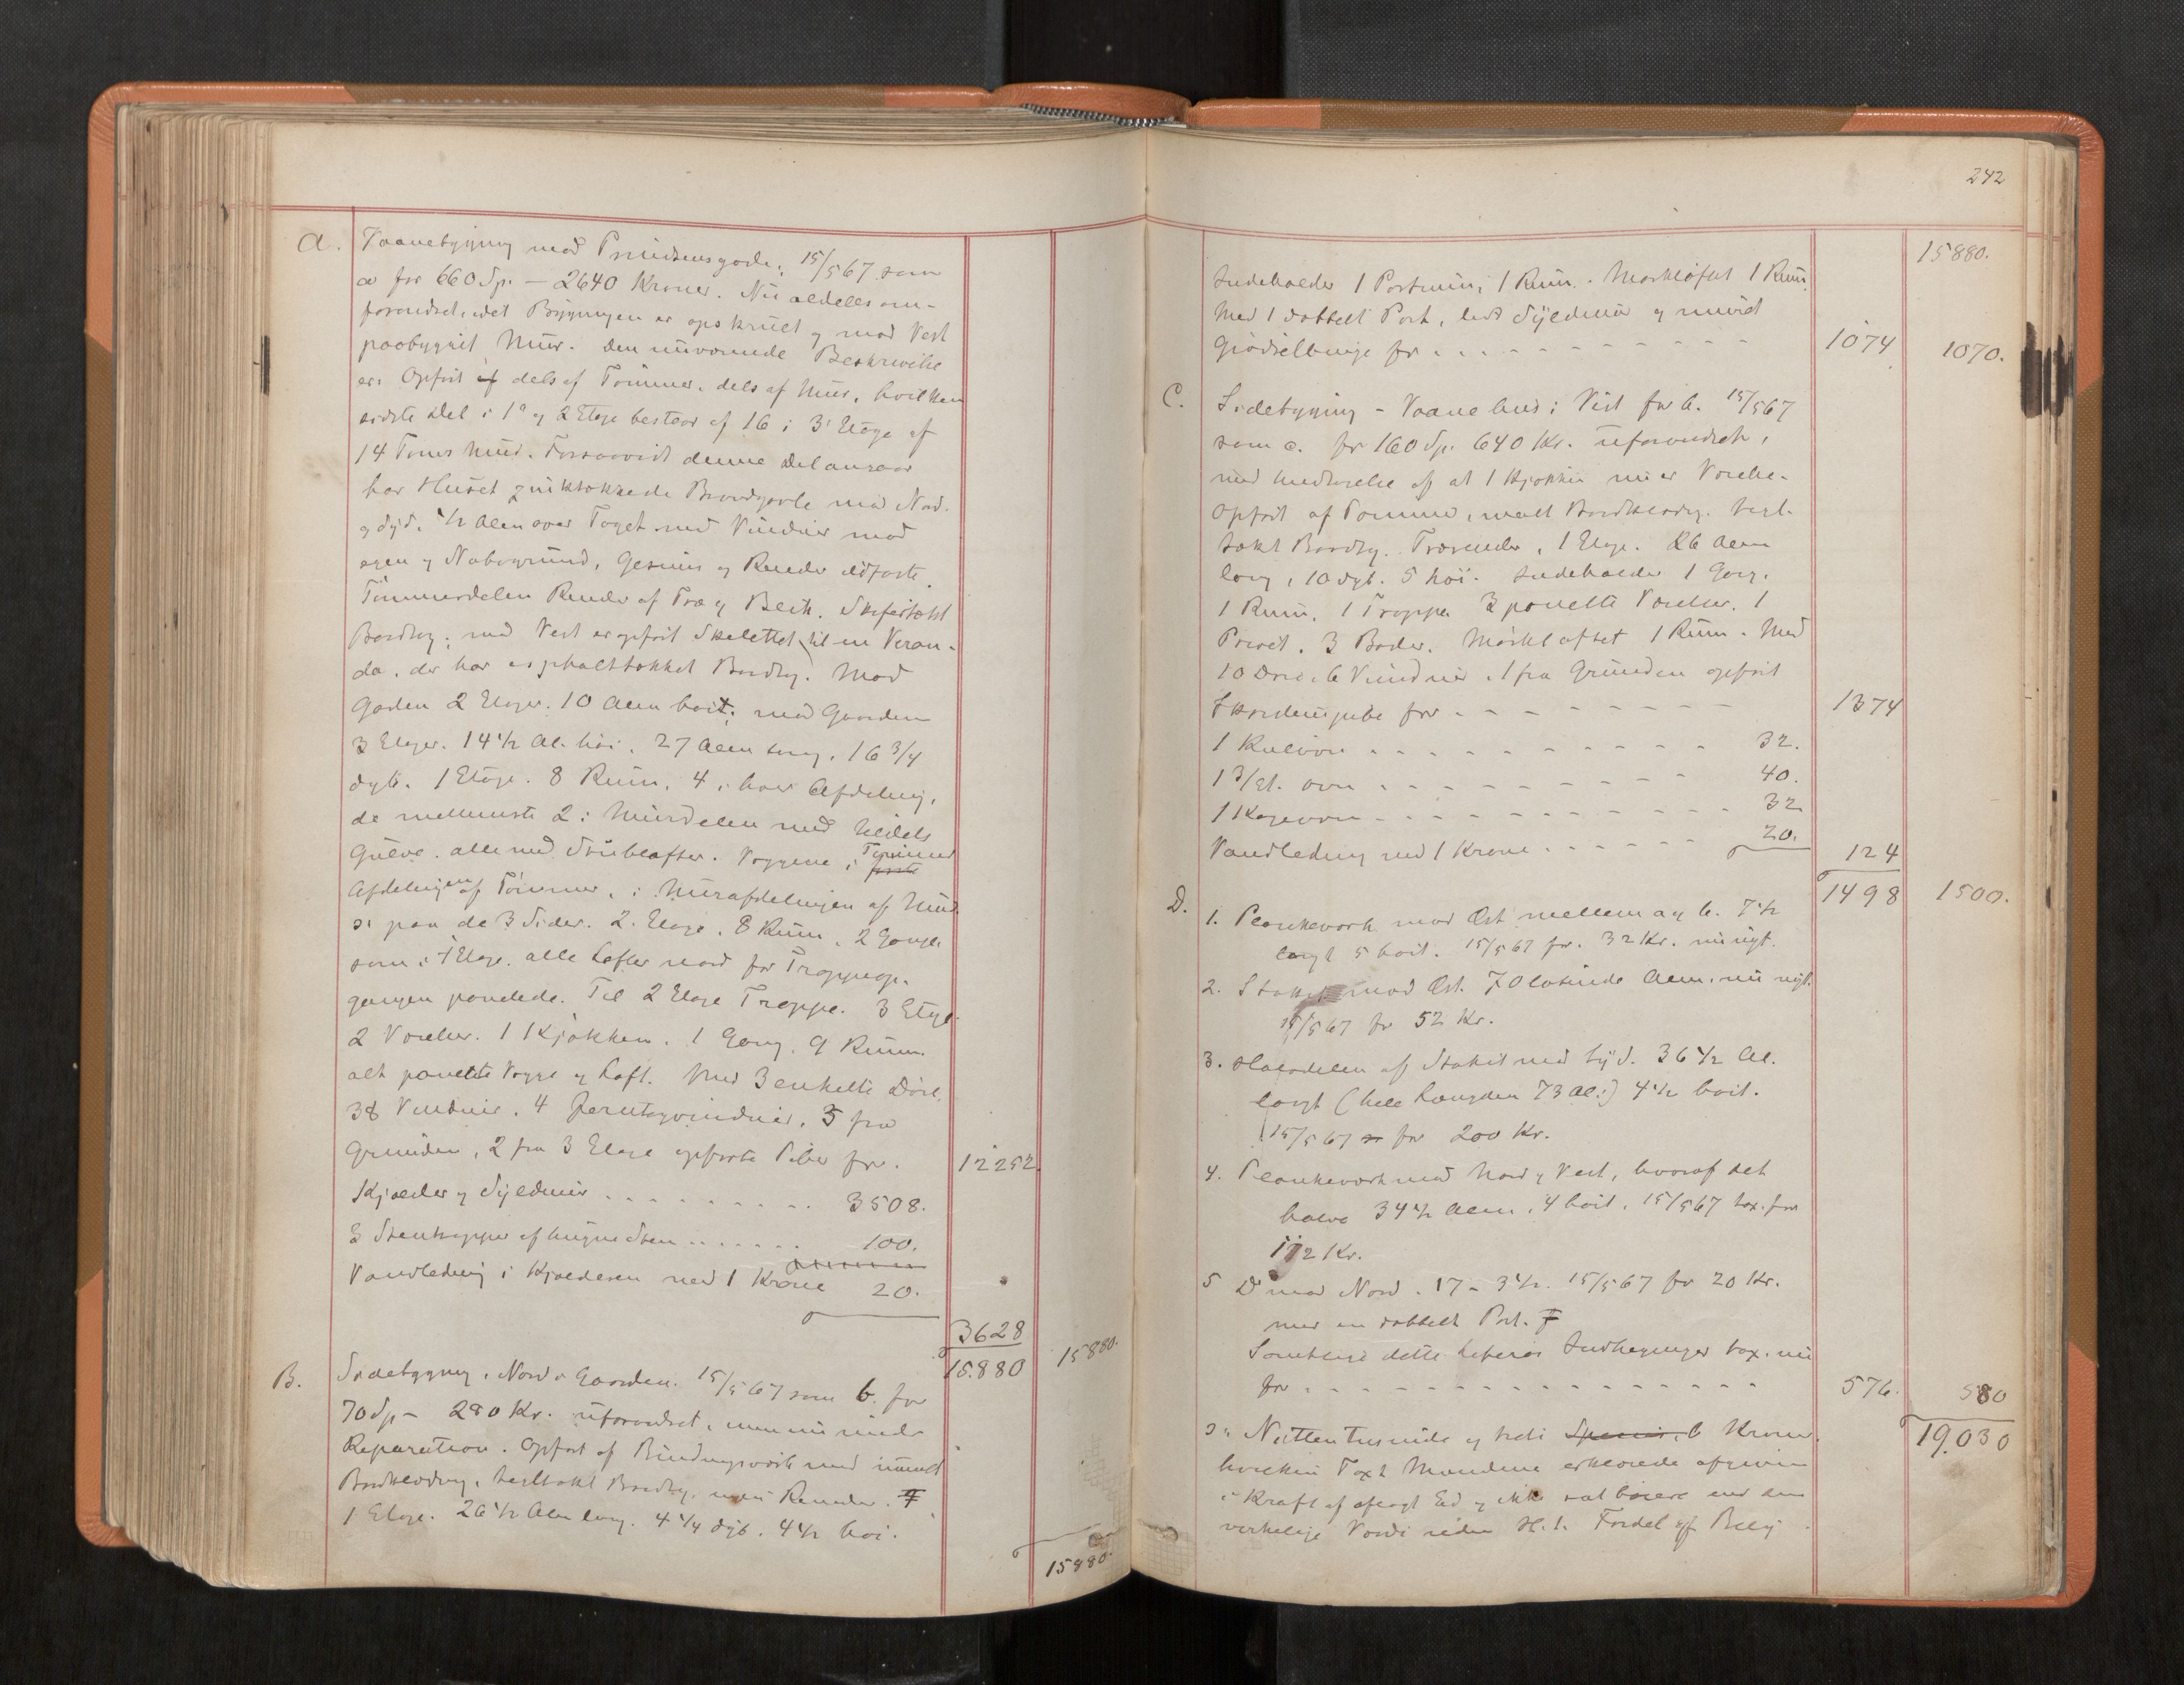 242
a. Vaanebygning mod Prindsensgade. 15/5 67 som
a for 660 Sp. – 2640 Kroner. Nu aldeles om-
forandret, idet Bygningen er opskruet og mod Vest
paabygget Muur. Den nuværende Beskrivelse
er: Opført af dels af Tømmer, dels af Muur, hvilken
sidste Del i 1ste og 2 Etage bestaar af 16 i 3die Etage af
14 Toms Muur. Forsaavidt denne Del angaar
har Huset zinktækkede Brandgavle mod Nord
og Syd, 1/2 Alen over Taget med Vinduer mod
egen og Nabogrund, Gesims og Render ildfaste.
Tømmerdelen Render af Træ og Blik. Skifertækt
Bordtag; mod Vest er opført Skelettet til en Veran-
da, der har asphalttækket Bordtag. Mod
Gaden 2 Etager. 10 Alen høit; mod Gaarden
3 Etager. 14 1/2 Al. høi. 27 Alen lang. 16 3/4
dyb. 1 Etage. 8 Rum, 4 i hver Afdeling,
de mellemste 2 i Muurdelen med
Gulve. alle med Stuklofter. Væggene i Tømmer
Afdelingen af Tømmer, i Murafdelingen af Muur
paa de 3 Sider. 2. Etage. 8 Rum, 2 Gange
som i 1 Etage. alle Lofter nord for Trappeop-
gangen panelede. Til 2 Etage Trappe. 3 Etage
2 Værelser. 1 Kjøkken. 1 Gang. 9 Rum.
alt panelte Vægge og Loft. Med 3 enkelte Døre,
38 Vinduer. 4 Jerntagvinduer, 5 fra
Grunden, 2 fra 3 Etage opførte Piber for. 12252.
Kjælder og Syldmur . . . . . . . 3508.
3 Stentrapper af hugne Sten . . . . . . 100.
Vandledning i Kjælderen med 1 Krane 20.
3628
15.880 15880.
B. Sidebygning i Nord i Gaarden. 15/5 67 som b. for
70 Sp – 280 Kr. uforandret, men nu under
Reparation. Opført af Bindingsværk med umalt
Bordklædning, tegltækt Bordtag, uden Render.
1 Etage. 26 1/2 Alen lang. 4 1/4 dyb. 4 1/2 høi.
15880.
15880.
Indeholder 1 Portrum, 1 Rum. Mørkloftet 1 Rum.
Med 1 dobbelt Port, lidt Syldmur og muret
Gjødselbinge for . . . - - - - - - - - 1074 1070.
C. Sidebygning – Vaanehus i Vest for b. 15/5 67
som c. for 160 Sp. 640 Kr. uforandret,
med Undtagelse af at 1 Kjøkken nu er Værelse.
Opført af Tømmer, malt Bordklædn. tegl-
tækt Bordtag. Trærender, 1 Etage. 26 Alen
lang, 10 dyb. 5 høi. Indeholder 1 Gang.
1 Rum, 1 Trappe 3 panelte Værelser. 1
Privet. 3 Boder. Mørkloftet 1 Rum. Med
10 Døre, 6 Vinduer. 1 fra Grunden opført
Skorstenspibe for - - - - - - - - - 1374
1 Kulovn - - - - - - - - - - - 32.
1 3/Et. ovn - - - - - - - - - - 40.
1 Kogeovn - - - - - - - - - - - 32
Vandledning med 1 Krane - - - - - - 20. 124
1498 1500.
D. 1. Plankeværk mod Øst mellem a og b. 7 1/2
langt 5 høit. 15/5 67 for. 32 Kr. nu nyt.
2. Stakit mod Øst. 70 løbende Alen, nu nyt.
15/5 67 for 52 Kr.
3. Halvdelen af Stakit mod Syd. 36 1/2 Al.
langt (hele Længden 73 Al:) 4 1/2 høit.
15/5 67 for 200 Kr.
4. Plankeværk mod Nord og Vest, hvoraf det
halve 34 1/2 Alen, 4 høit. 15/5 67 tax. for
112 Kr.
5 Do mod Nord. 17 – 3 1/2. 15/5 67 for 20 Kr.
med en dobbelt Port.
Samtlige dette Litras Indhegninger tax. nu
for - - - - - - - - - - - - - - - - 576. 580
19.030
Nitten tusinde og tredi Kroner,
hvilken Taxt Mændene erklærede afgiven
i Kraft af aflagt Ed og ikke sat høiere end den
virkelige Værdi uden H. t. Fordel af Belig